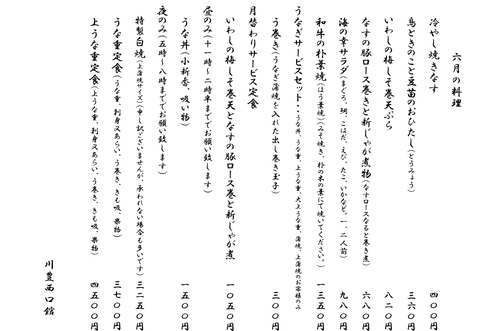 六月の料理
冷やし焼きなす　四〇〇円
鳥どきのこと豆苗のおひたし（とうみょう）　三六〇円
いわしの梅しそ巻天ぷら　八二〇円
なすの豚ロース巻きと新じゃが煮物（なすロースなると巻き煮）　六八〇円
海の幸サラダ（まぐろ、鯛、こはだ、えび、たこ、いかなど。一、二人前）　九八〇円
和牛の朴葉焼（ほう葉焼）（みそ焼き、朴の木の葉にて焼いてください。）　一三五〇円
うなぎサービスセット・・うな丼、うな重、上うな重、大上うな重、蒲焼、上蒲焼のお客様のみ
う巻き（うなぎ蒲焼を入れた出し巻き玉子）　三〇〇円
月替わりサービス定食
いわしの梅しそ巻天となすの豚ロース巻と新じゃが煮　一〇五〇円
昼のみ（十一時～二時半まででお願い致します）
うな丼（小新香、吸い物）　一五〇〇円
夜のみ（五時～八時まででお願い致します）
特製白焼（上蒲焼サイズ）（申し訳ございませんが、承われない場合も多いです）　三二五〇円
うな重定食（うな重、刺身又あらい、う巻き、きも吸、果物）　三七〇〇円
上うな重定食（上うな重、刺身又あらい、う巻き、きも吸、果物）　四五〇〇円
川豊西口館